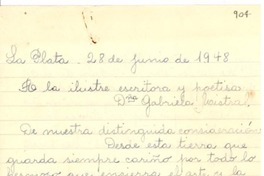 904
La Plata - 28 de junio de 1948
A la ilustre escritora y poetisa
Dña Gabriela Mistral
De nuestra distinguida consideración
Desde esta tierra que
guarda siempre cariño por todo lo
hermoso que encierra el arte y la